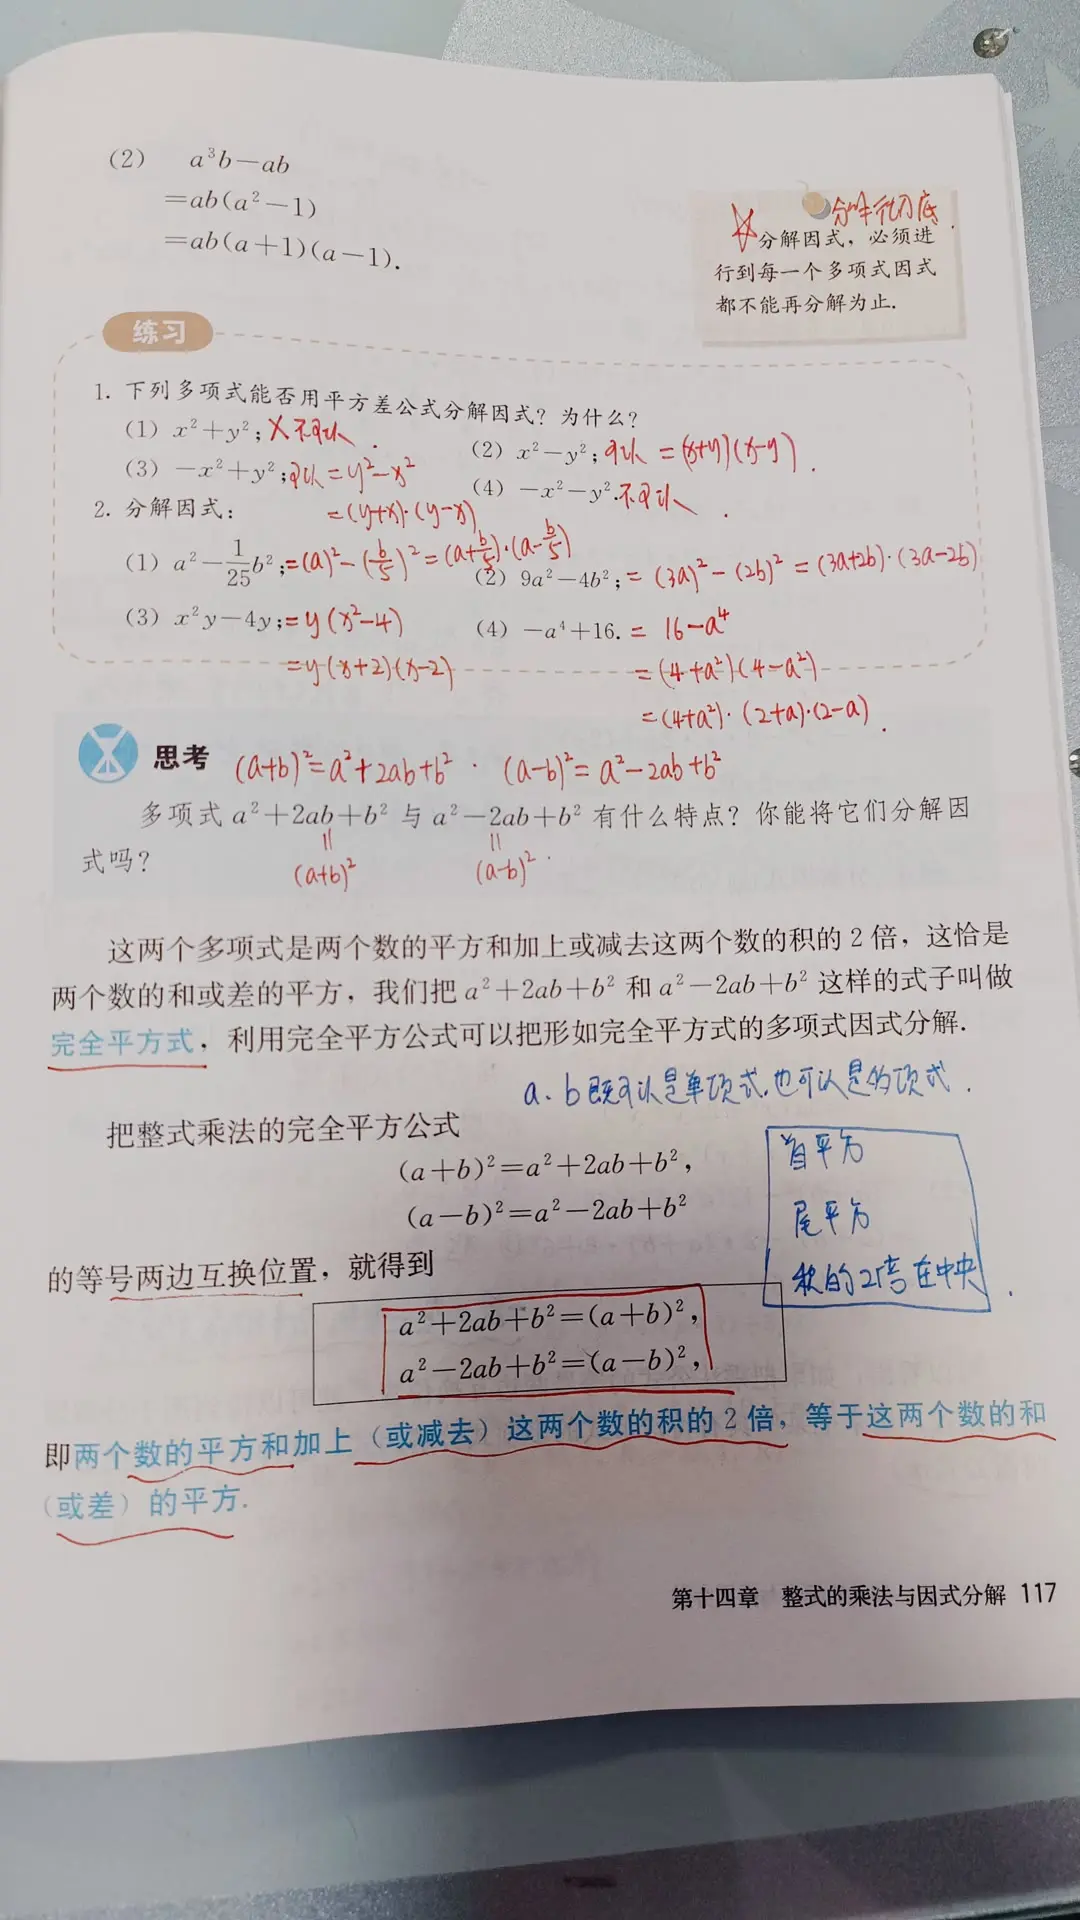 (2) a³b－ab
=ab(a²－1)
=ab(a＋1)(a－1).
分解彻底
分解因式，必须进
行到每一个多项式因式
都不能再分解为止.
练习
1. 下列多项式能否用平方差公式分解因式？为什么？
(1) x²＋y²; X 不可以.
(2) x²－y²; 可以 = (x+y)(x-y).
(3) －x²＋y²; 可以 = y²-x²
= (y+x)·(y-x)
(4) －x²－y². 不可以.
2. 分解因式：
(1) a²－1/25b²; = (a)²-(b/5)² = (a+b/5)·(a-b/5)
(2) 9a²－4b²; = (3a)²-(2b)² = (3a+2b)·(3a-2b)
(3) x²y－4y; = y(x²-4)
= y(x+2)(x-2)
(4) －a⁴＋16. = 16-a⁴
= (4+a²)(4-a²)
= (4+a²)·(2+a)·(2-a).
思考 (a+b)²=a²+2ab+b². (a-b)²=a²-2ab+b²
多项式 a²＋2ab＋b² 与 a²－2ab＋b² 有什么特点？你能将它们分解因
式吗？ = (a+b)² = (a-b)².
这两个多项式是两个数的平方和加上或减去这两个数的积的 2 倍，这恰是
两个数的和或差的平方，我们把 a²＋2ab＋b² 和 a²－2ab＋b² 这样的式子叫做
完全平方式，利用完全平方公式可以把形如完全平方式的多项式因式分解.
a、b既可以是单项式,也可以是多项式.
把整式乘法的完全平方公式
(a＋b)²=a²＋2ab＋b²,
(a－b)²=a²－2ab＋b²
首平方
尾平方
积的2倍在中央.
的等号两边互换位置，就得到
a²＋2ab＋b²=(a＋b)²,
a²－2ab＋b²=(a－b)²,
即两个数的平方和加上（或减去）这两个数的积的 2 倍，等于这两个数的和
（或差）的平方.
第十四章 整式的乘法与因式分解 117